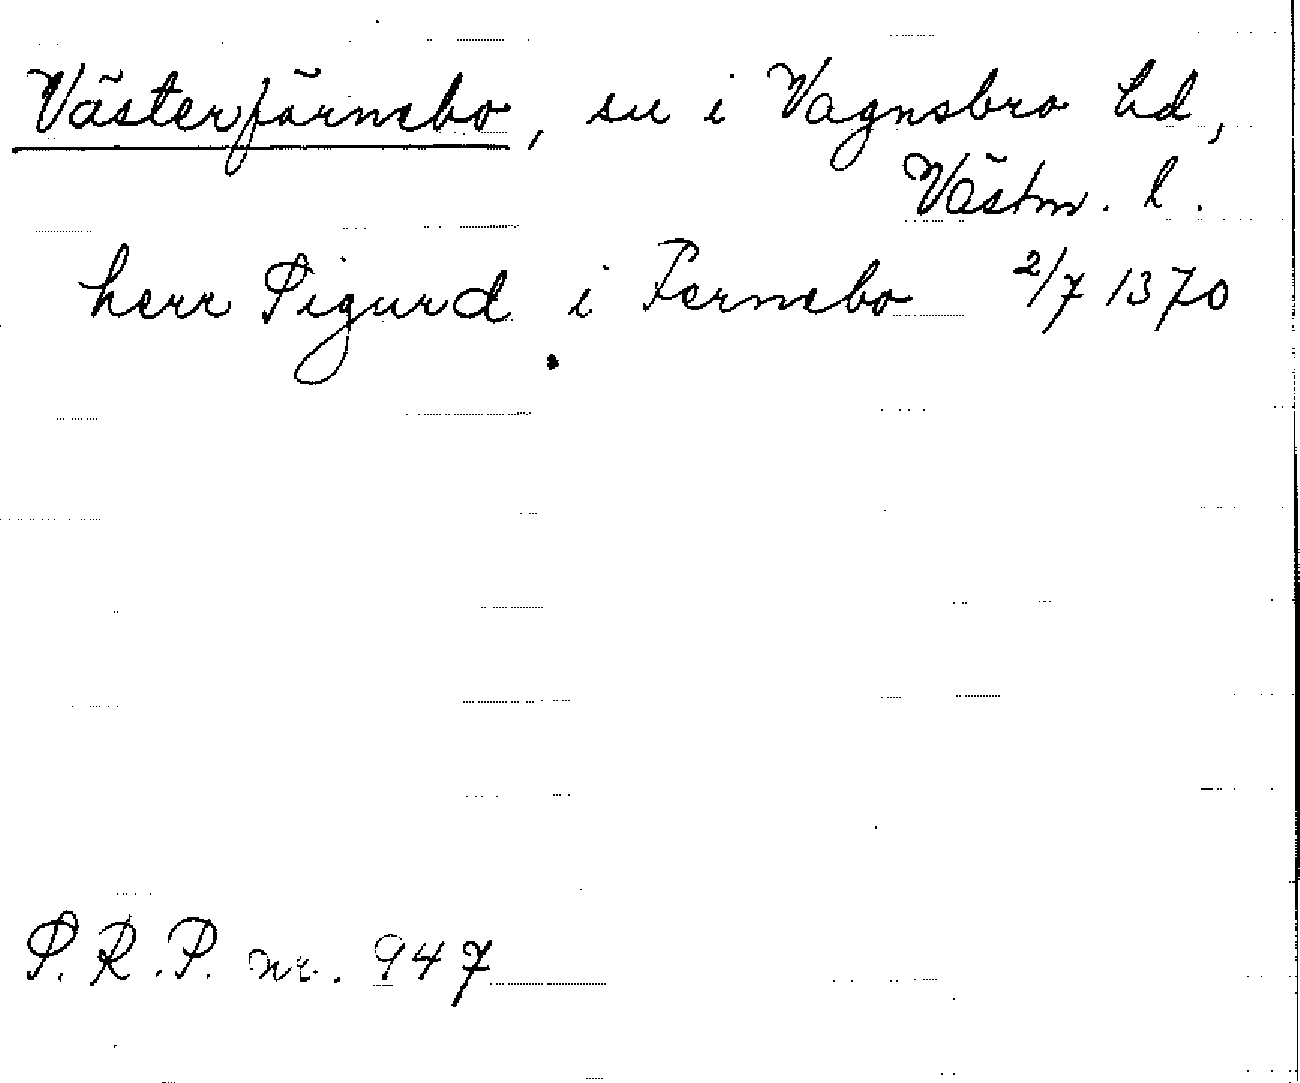 Västerfärnebo, sn i Vagnsbro hd,
Västm. l.
herr Sigurd i Fernebo 2/7 1370
S.R.P. nr. 947